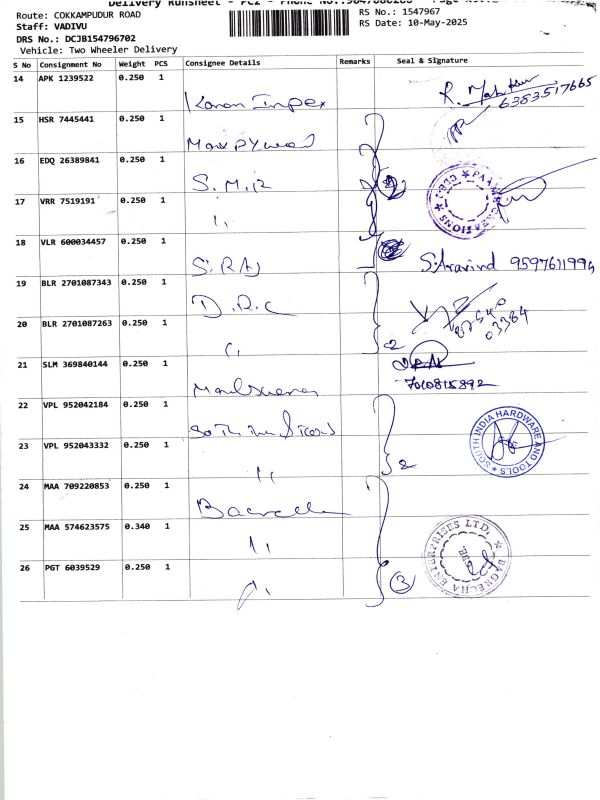 Delivery Runsheet - PC2 - Phone No.:
Route: COKKAMPUDUR ROAD
RS No.: 1547967
Staff: VADIVU
RS Date: 10-May-2025
DRS No.: DCJB154796702
Vehicle: Two Wheeler Delivery
S No Consignment No Weight PCS Consignee Details Remarks Seal & Signature
14 APK 1239522 0.250 1 Karan Impex
6383517665
15 HSR 7445441 0.250 1
16 EDQ 26389841 0.250 1 S.M.R
17 VRR 7519191 0.250 1 ,,
18 VLR 600034457 0.250 1 S.RAJ S.Aravind 9597611994
19 BLR 2701087343 0.250 1 D.R.C
20 BLR 2701087263 0.250 1 ,, 2
21 SLM 369840144 0.250 1
7010815892
22 VPL 952042184 0.250 1
SOUTH INDIA HARDWARE AND TOOLS
23 VPL 952043332 0.250 1 ,, 2
24 MAA 709220853 0.250 1
25 MAA 574623575 0.340 1 ,,
BAGRECHA ENTERPRISES LTD.
CBE.
26 PGT 6039529 0.250 1 ,, 3